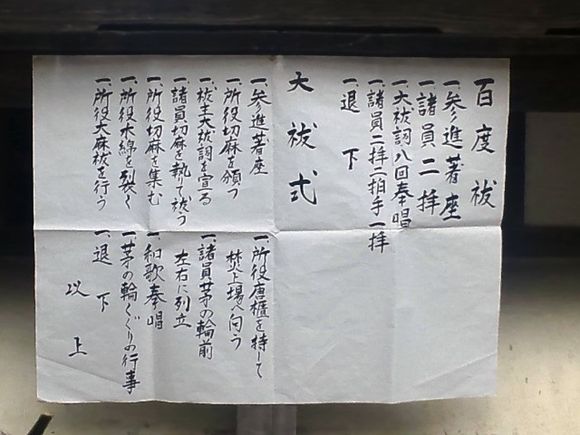 百度祓
一、参進著座
一、諸員二拝
一、大祓詞八回奉唱
一、諸員二拝二拍手一拝
一、退下
大祓式
一、参進著座
一、所役切麻を頒つ
一、祓主大祓詞を宣る
一、諸員切麻を執て祓う
一、所役切麻を集む
一、所役木綿を裂く
一、所役大麻祓を行う
一、所役唐櫃を持して
焚上場へ向う
一、諸員茅の輪前
左右に列立
一、和歌奉唱
一、茅の輪くぐりの行事
一、退下
以上